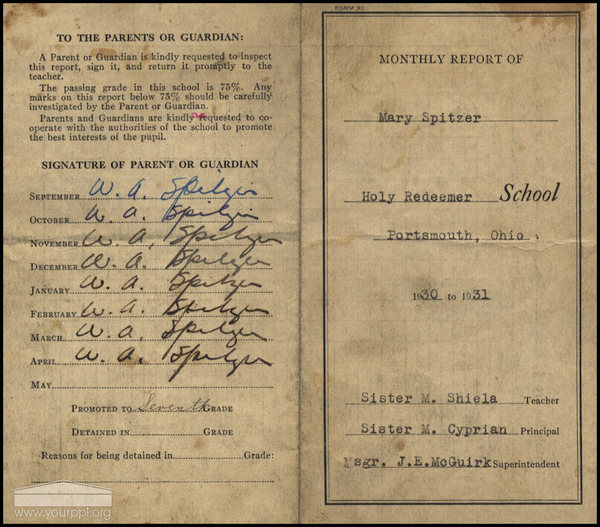 TO THE PARENTS OR GUARDIAN:
A Parent or Guardian is kindly requested to inspect
this report, sign it, and return it promptly to the
teacher.
The passing grade in this school is 75%. Any
marks on this report below 75% should be carefully
investigated by the Parent or Guardian.
Parents and Guardians are kindly requested to co-
operate with the authorities of the school to promote
the best interests of the pupil.
SIGNATURE OF PARENT OR GUARDIAN
SEPTEMBER W. A. Spitzer
OCTOBER W. A. Spitzer
NOVEMBER W. A. Spitzer
DECEMBER W. A. Spitzer
JANUARY W. A. Spitzer
FEBRUARY W. A. Spitzer
MARCH W. A. Spitzer
APRIL W. A. Spitzer
MAY
PROMOTED TO Seventh GRADE
DETAINED IN GRADE
Reasons for being detained in Grade:
www.yourppl.org
FORM K1
MONTHLY REPORT OF
Mary Spitzer
Holy Redeemer School
Portsmouth, Ohio.
1930 to 1931
Sister M. Shiela Teacher
Sister M. Cyprian Principal
Msgr. J.E.McGuirk Superintendent